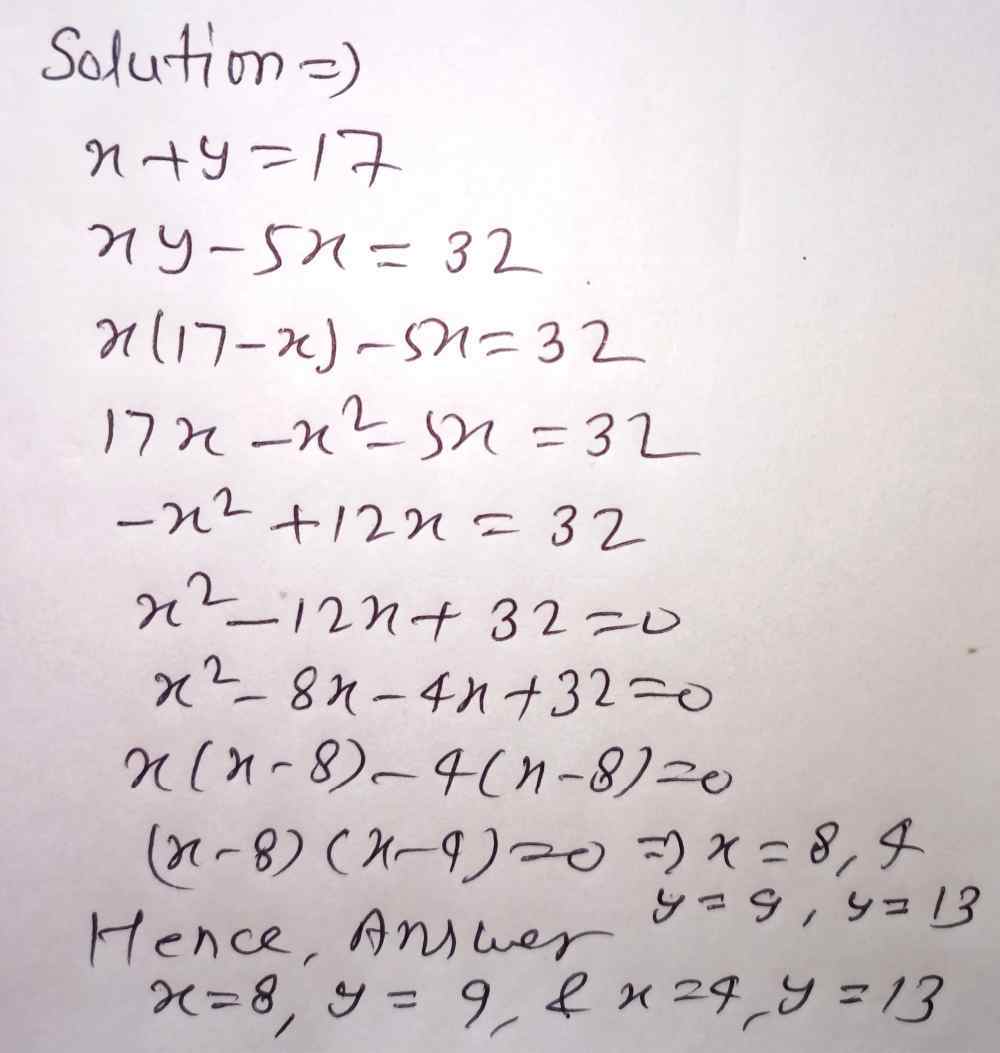 Solution =>
x + y = 17
xy - 5x = 32
x(17 - x) - 5x = 32
17x - x² - 5x = 32
-x² + 12x = 32
x² - 12x + 32 = 0
x² - 8x - 4x + 32 = 0
x(x - 8) - 4(x - 8) = 0
(x - 8) (x - 4) = 0 => x = 8, 4
y = 9, y = 13
Hence, Answer
x = 8, y = 9, & x = 4, y = 13